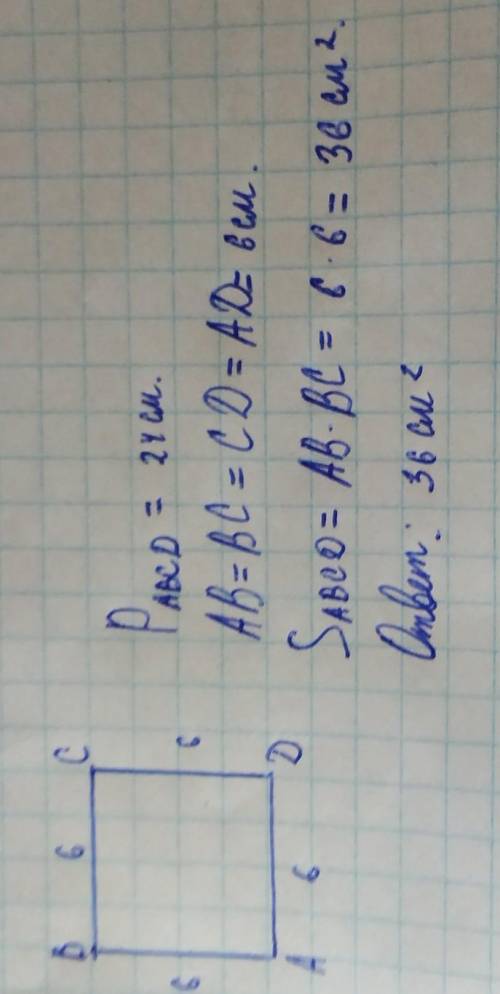 B 6 C
6 6
A 6 D
P ABCD = 24 см.
AB = BC = CD = AD = 6 см.
S ABCD = AB · BC = 6 · 6 = 36 см².
Ответ: 36 см²